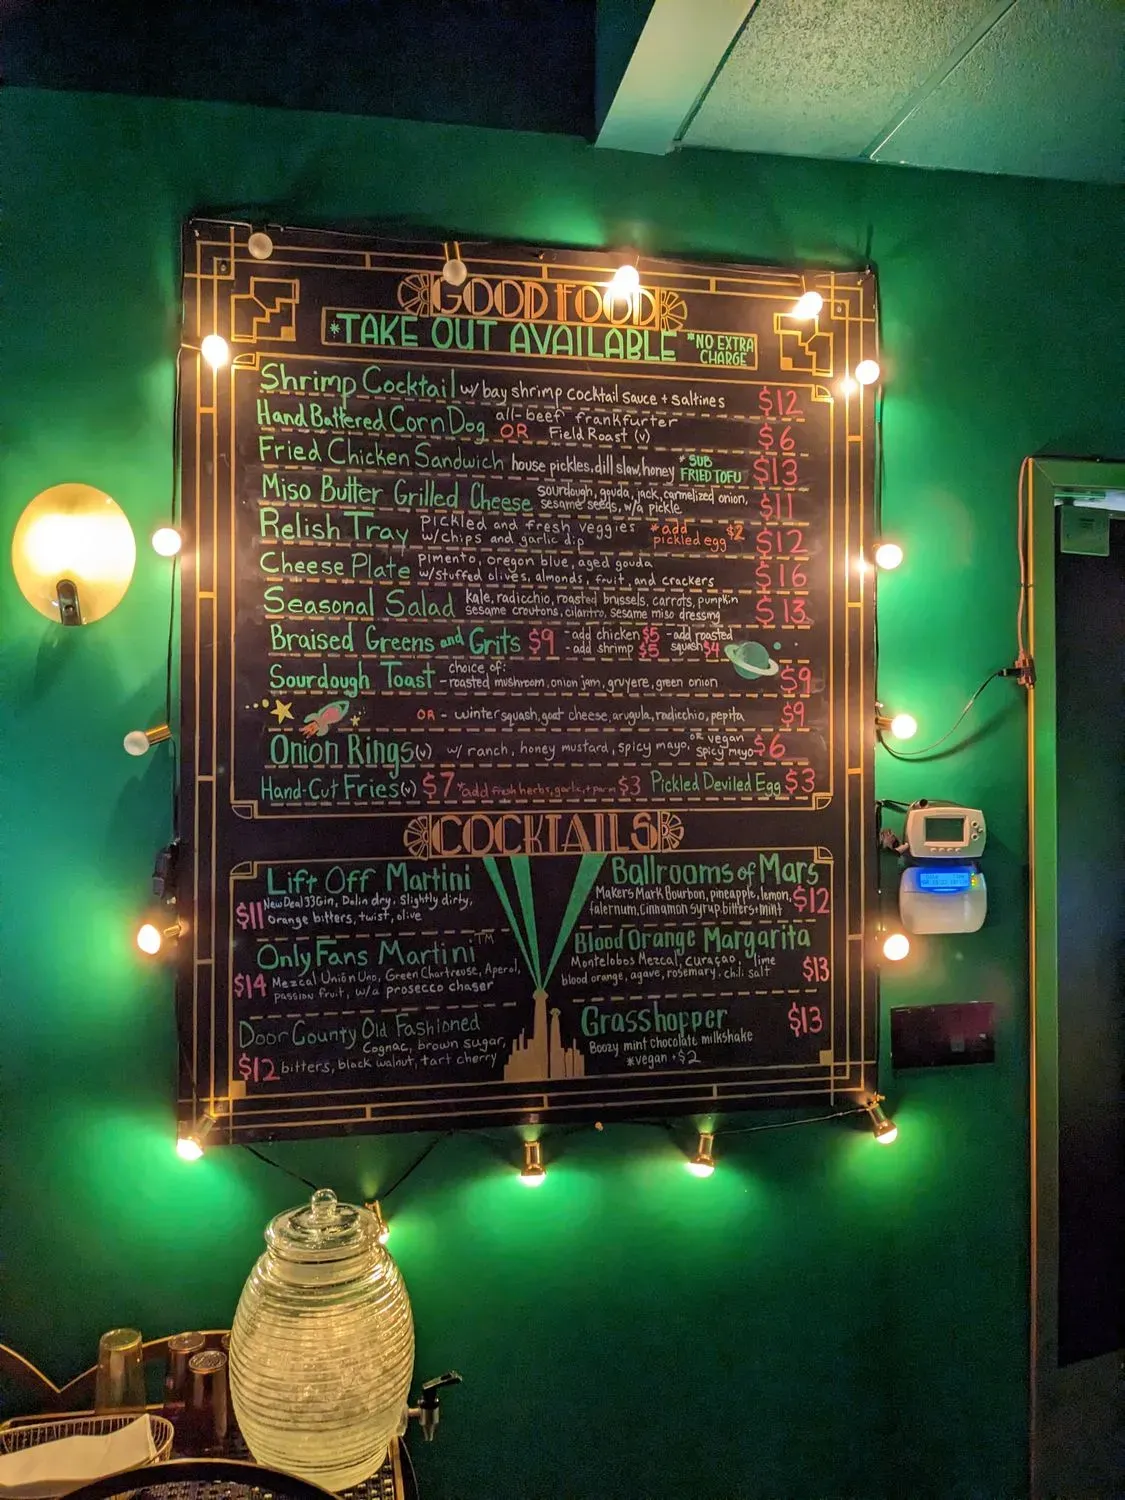 GOOD FOOD
*TAKE OUT AVAILABLE *NO EXTRA CHARGE
Shrimp Cocktail w/ bay shrimp cocktail sauce + saltines $12
Hand Battered Corn Dog all-beef frankfurter OR Field Roast (v) $6
Fried Chicken Sandwich house pickles, dill slaw, honey *SUB FRIED TOFU $13
Miso Butter Grilled Cheese sourdough, gouda, jack, carmelized onion, sesame seeds, w/a pickle $11
Relish Tray pickled and fresh veggies w/chips and garlic dip *add pickled egg $2 $12
Cheese Plate pimento, oregon blue, aged gouda w/stuffed olives, almonds, fruit, and crackers $16
Seasonal Salad kale, radicchio, roasted brussels, carrots, pumpkin sesame croutons, cilantro, sesame miso dressing $13
Braised Greens and Grits $9 -add chicken $5 -add shrimp $5 -add roasted squash $4
Sourdough Toast choice of: -roasted mushroom, onion jam, gruyere, green onion $9
OR - winter squash, goat cheese, arugula, radicchio, pepita $9
Onion Rings (v) w/ ranch, honey mustard, spicy mayo, or vegan spicy mayo $6
Hand-Cut Fries (v) $7 *add fresh herbs, garlic, + parm $3 Pickled Deviled Egg $3
COCKTAILS
Lift Off Martini
$11 New Deal 33 Gin, Dolin dry, Slightly dirty,
orange bitters, twist, olive
OnlyFans Martini™
$14 Mezcal Unión Uno, Green Chartreuse, Aperol,
passion fruit, w/a prosecco chaser
Door County Old Fashioned
Cognac, brown sugar,
$12 bitters, black walnut, tart cherry
Ballrooms of Mars
Makers Mark Bourbon, pineapple, lemon, $12
falernum, Cinnamon syrup, bitters + mint
Blood Orange Margarita
Montelobos Mezcal, curaçao, lime
blood orange, agave, rosemary. chili salt $13
Grasshopper $13
Boozy mint chocolate milkshake
*vegan + $2